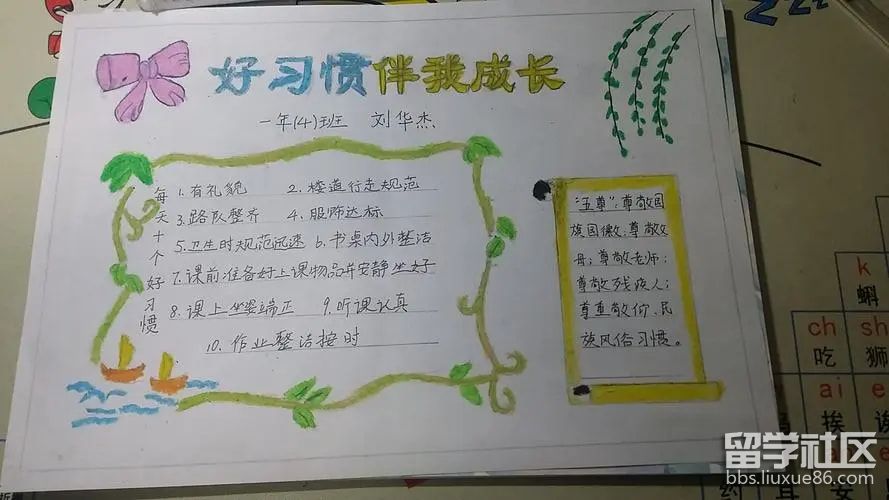 好习惯伴我成长
一年(4)班 刘华杰
每天十个好习惯
1.有礼貌 2.楼道行走规范
3.路队整齐 4.服饰达标
5.卫生时规范迅速 6.书桌内外整洁
7.课前准备好上课物品并安静坐好
8.课上坐姿端正 9.听课认真
10.作业整洁按时
"五尊":尊敬国
旗国徽;尊敬父
母;尊敬老师;
尊敬残疾人;
尊重敬仰、民
族风俗习惯。
k
蝌
ch sh
吃 狮
ai e
挨 诶
留学社区
bbs.liuxue86.com